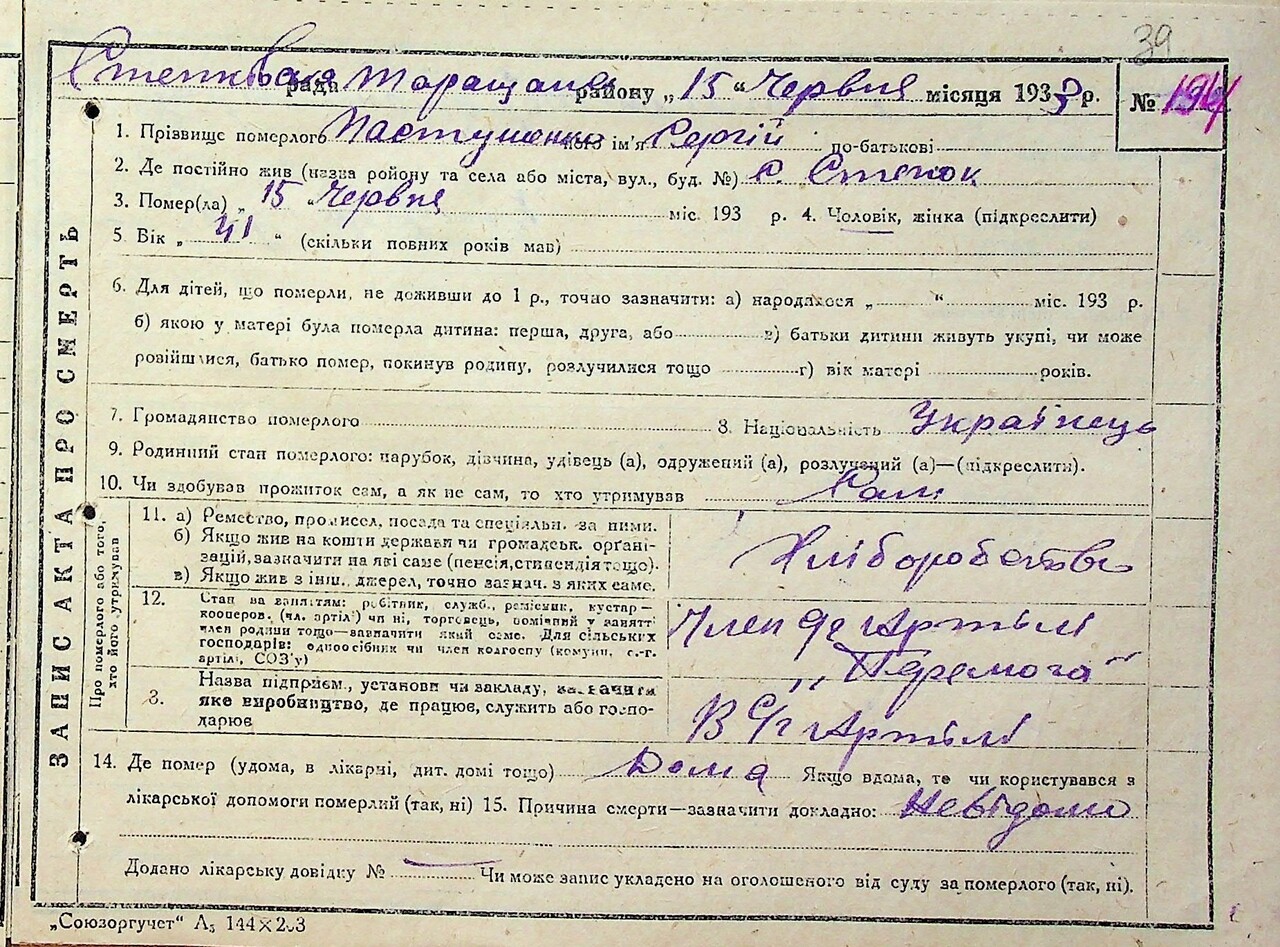 39
Степківська рада Таращансь району „15“ Червня місяця 1933 р. №
1. Прізвище померлого Пастушенко його ім'я Сергій по-батькові
2. Де постійно жив (назва ройону та села або міста, вул., буд. №) с. Степок
3. Помер(ла) „15“ Червня міс. 193 р. 4. Чоловік, жінка (підкреслити)
5 Вік „41“ (скільки повних років мав)
6. Для дітей, що померли, не доживши до 1 р., точно зазначити: а) народилося „ “ міс. 193 р.
б) якою у матері була померла дитина: перша, друга, або в) батьки дитини живуть укупі, чи може
розійшлися, батько помер, покинув родину, розлучилися тощо г) вік матері років.
7. Громадянство померлого 8. Національність Українець
9. Родинний стан померлого: парубок, дівчина, удівець (а), одружений (а), розлучений (а)—(підкреслити).
10. Чи здобував прожиток сам, а як не сам, то хто утримував Сам
ЗАПИС АКТА ПРО СМЕРТЬ
Про померлого або того,
хто його утримував
11. а) Ремество, промисел, посада та спеціяльн. за ними.
б) Якщо жив на кошти держави чи громадськ. орґані-
зацій, зазначити на які саме (пенсія, стипендія тощо).
в) Якщо жив з інш. джерел, точно зазнач. з яких саме.
Хліборобство
12. Стан за заняттям: робітник, служб., ремісник, кустар—
кооперов. (чл. артілі) чи ні, торговець, помічний у занятті
член родини тощо—зазначити який саме. Для сільських
господарів: одноосібник чи член колгоспу (комуни, с.-г.
артілі, СОЗ'у)
Член с/г Артілі
„Перемога“
3. Назва підприєм., установи чи закладу, зазначити
яке виробництво, де працює, служить або госпо-
дарює
В С/г Артілі
14. Де помер (удома, в лікарні, дит. домі тощо) Дома Якщо вдома, то чи користувався з
лікарської допомоги померлий (так, ні) 15. Причина смерти—зазначити докладно: Невідомо
Додано лікарську довідку № Чи може запис укладено на оголошеного від суду за померлого (так, ні).
„Союзоргучет“ А₅ 144×203